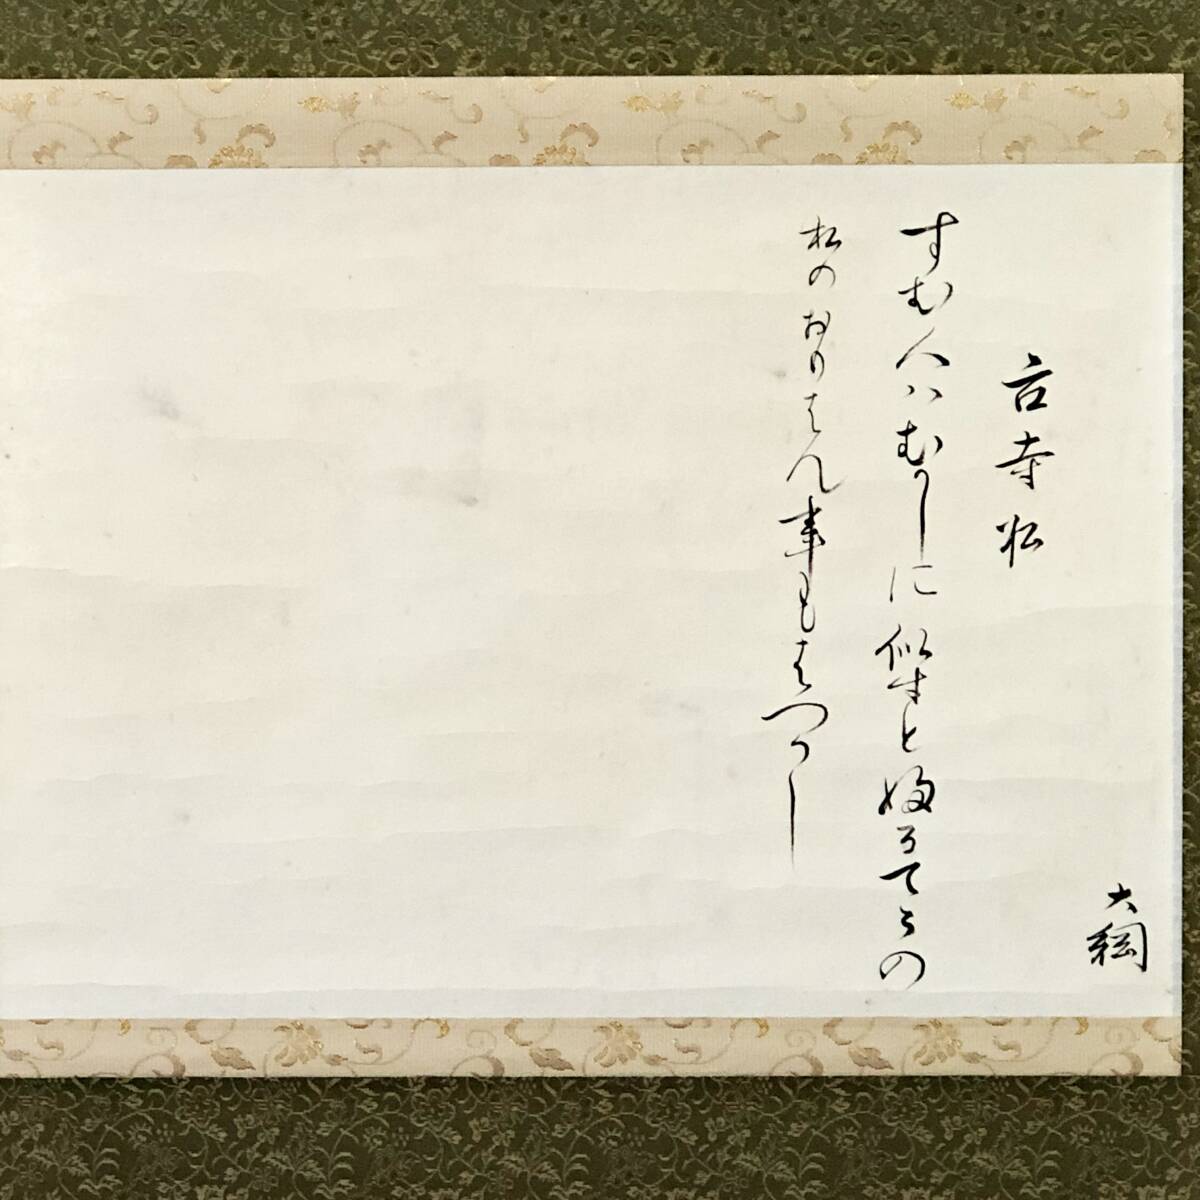 大綱
古寺松
すむ人ハむかしに似すとふるてらの
松のおもはん事もはつかし